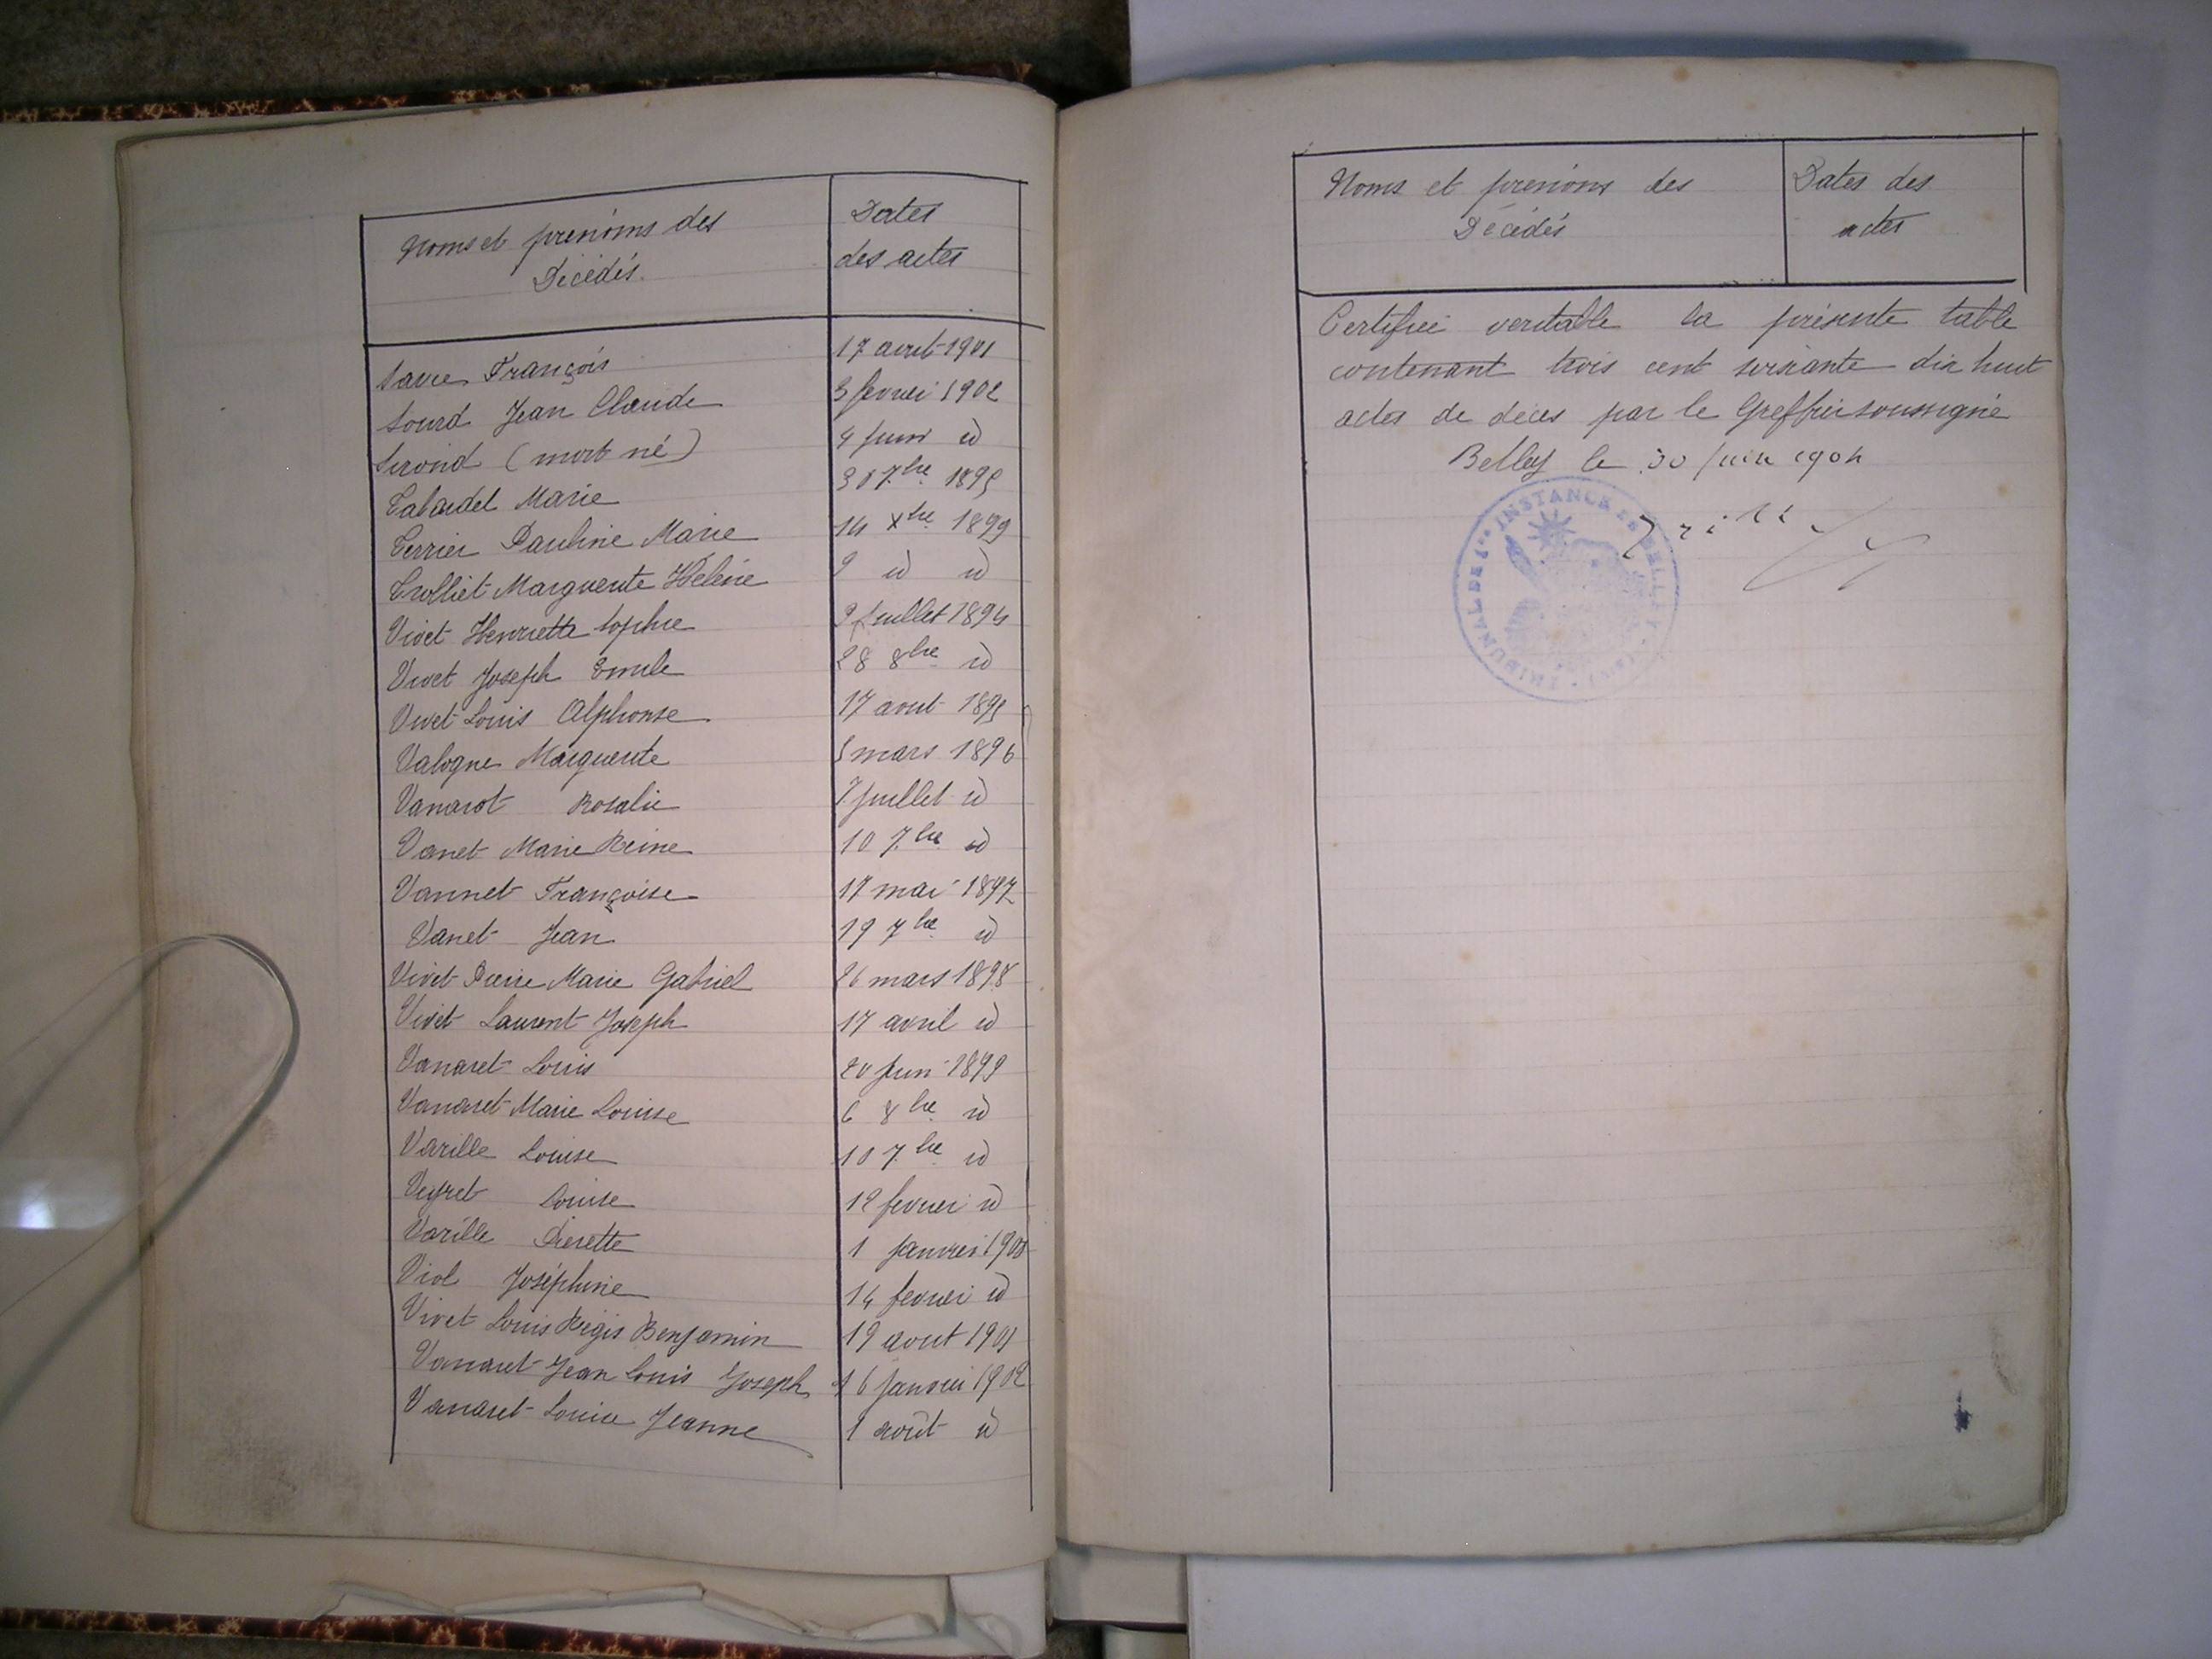 Noms et prénoms des
Décédés.
Dates
des actes
Savre François 17 avril 1901
Sourd Jean Claude 3 fevrier 1902
Sirond (mort né) 4 juin id
Tabardel Marie 30 7bre 1895
Terrier Pauline Marie 14 Xbre 1899
Trolliet Marguerite Hélène 9 id id
Vivet Henriette Sophie 9 juillet 1894
Vivet Joseph Emile 28 8bre id
Vivet Louis Alphonse 17 aout 1895
Valogne Marguerite 5 mars 1896
Vanarot Rosalie 7 juillet id
Vanet Marie Reine 10 7bre id
Vannet Françoise 17 mai 1897
Vanet Jean 19 7bre id
Vivet Pierre Marie Gabriel 26 mars 1898
Vivet Laurent Joseph 17 avril id
Vanaret Louis 20 juin 1899
Vanaret Marie Louise 6 8bre id
Varille Louise 10 7bre id
Veyret Louise 12 fevrier id
Varille Pierette 1 janvier 1900
Viol Joséphine 14 fevrier id
Vivet Louis Régis Benjamin 19 aout 1901
Vanaret Jean Louis Joseph 16 janvier 1902
Vanaret Louise Jeanne 1 août id
Noms et prénoms des
Décédés
Dates des
actes
Certifiée veritable la présente table
contenant trois cent soixante dix huit
actes de décès par le Greffier soussigné
Belley le 30 juin 1904
TRIBUNAL DE 1re INSTANCE DE BELLEY